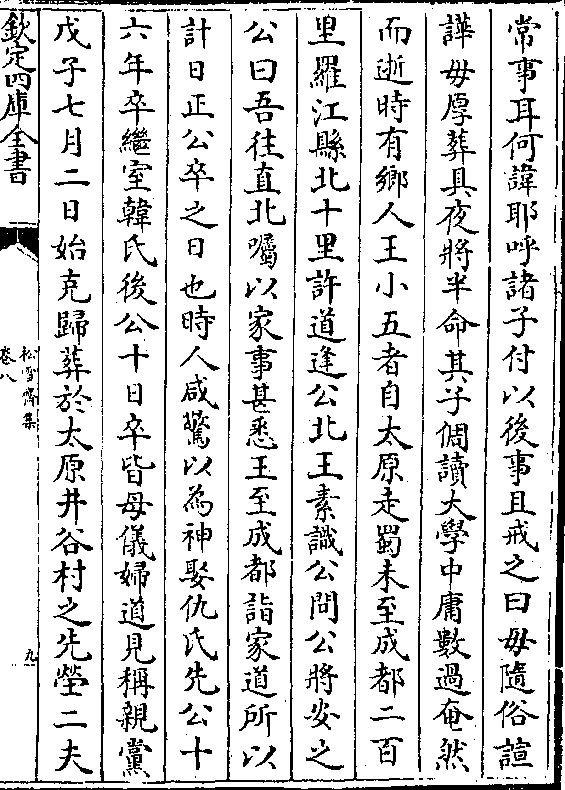 常事耳何諱耶呼諸子付以後事且戒之曰毋隨俗諠
譁毋厚葬具夜將半命其子倜讀大學中庸數過奄然
而逝時有鄉人王小五者自太原走蜀未至成都二百
里羅江縣北十里許道逢公北王素識公問公將安之
公曰吾往直北囑以家事甚悉王至成都詣家道所以
計日正公卒之日也時人咸驚以為神娶仇氏先公十
六年卒繼室韓氏後公十日卒皆母儀婦道見稱親黨
戊子七月二日始克歸葬於太原井谷村之先塋二夫
欽定四庫全書
松雪齋集
卷八
九